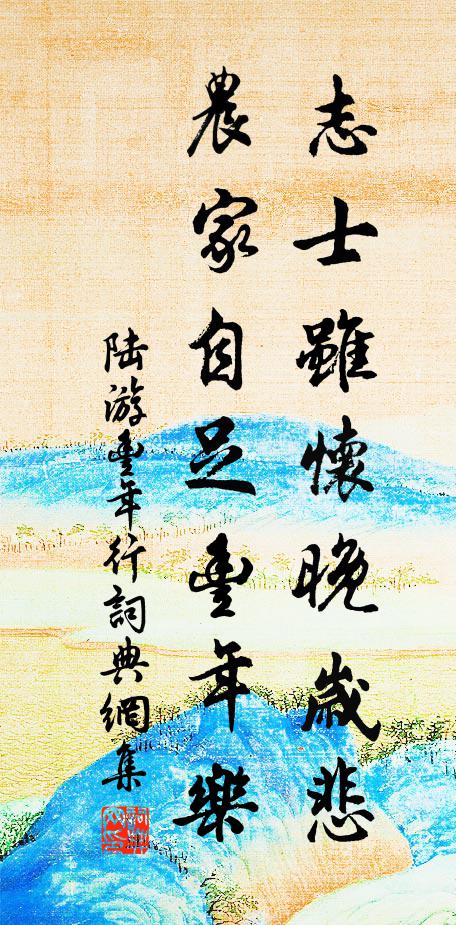 志士雖懷晚歲悲
農家自足豐年樂
陆游豐年行詞典網集